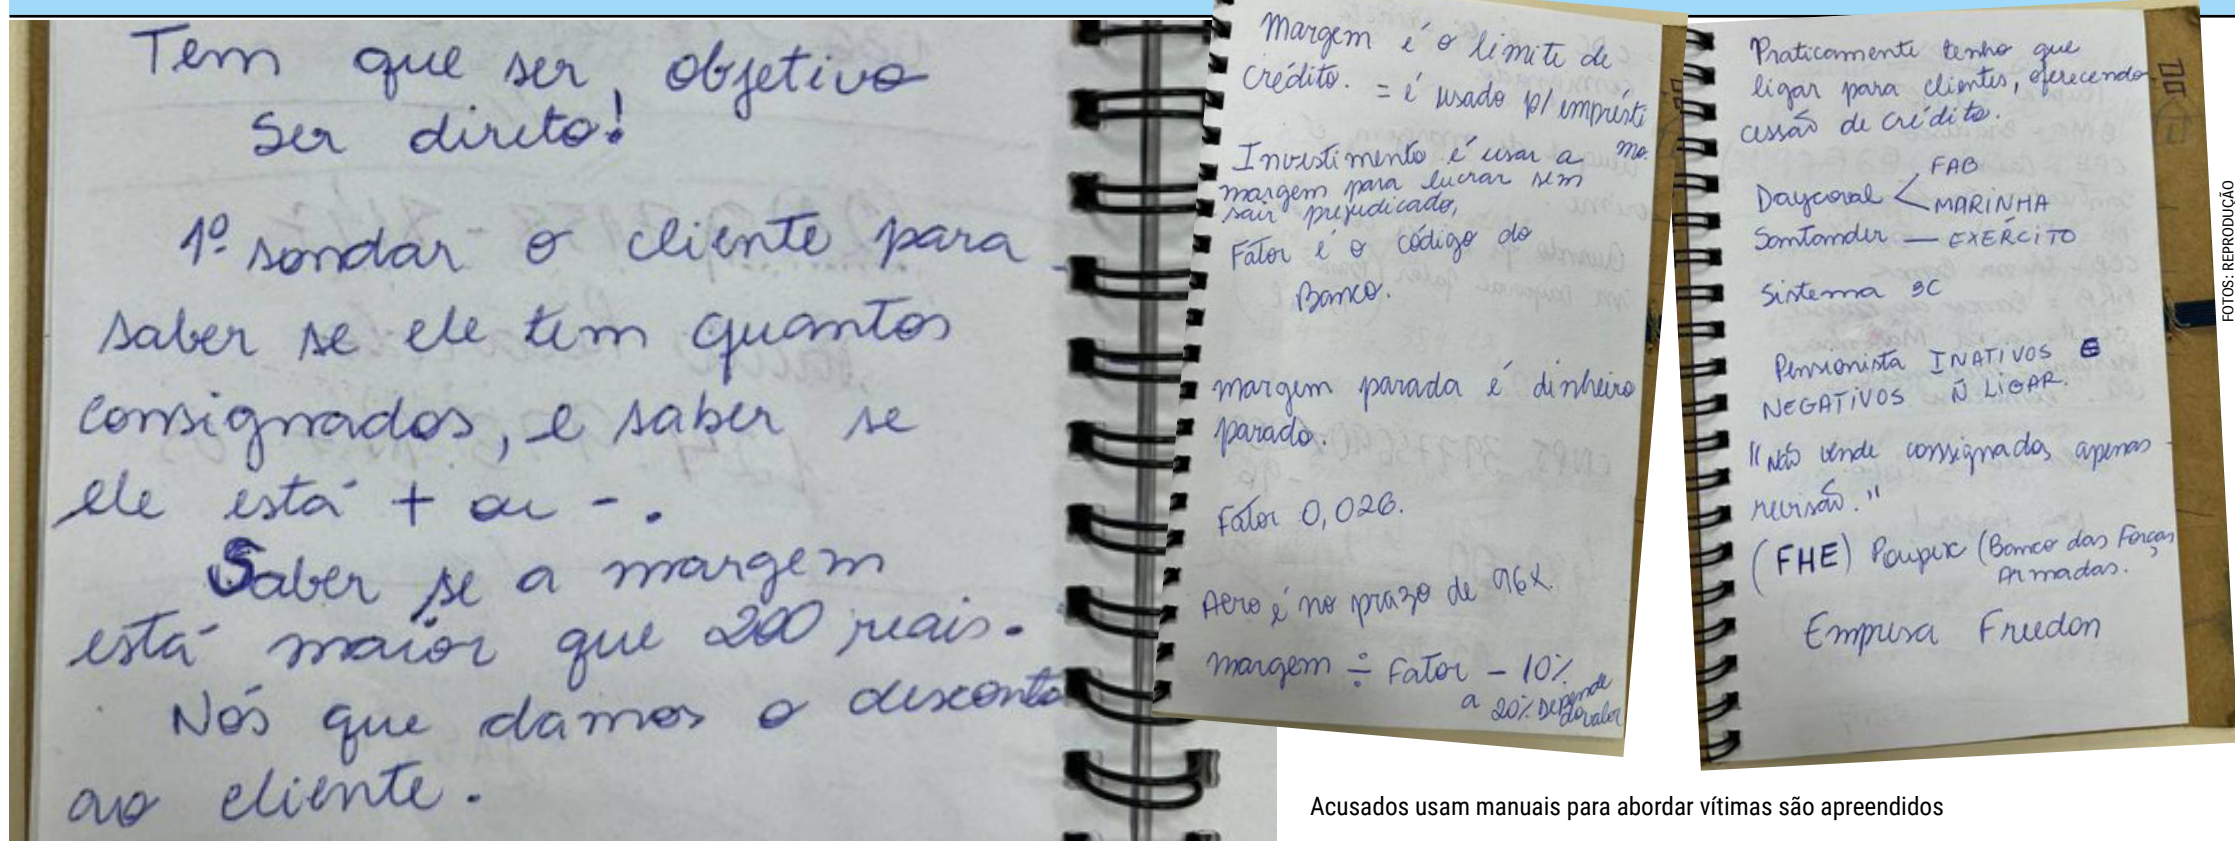 Tem que ser, objetivo
Ser direto!
1º sondar o cliente para
saber se ele tem quantos
consignados, e saber se
ele está + ou -.
Saber se a margem
está maior que 200 reais.
Nós que damos o desconto
ao cliente.
Margem é o limite de
crédito. = é usado p/ emprésti
mo.
Investimento é usar a
margem para lucrar sem
sair prejudicado,
Fator é o código do
Banco.
margem parada é dinheiro
parado.
Fator 0,026.
Aero é no prazo de 96x.
margem ÷ Fator - 10%
a 20% Depende
do valor
Praticamente tenho que
ligar para clientes, oferecendo
cessão de crédito.
Daycoval < FAB
MARINHA
Santander — EXÉRCITO
Sistema 3C
Pensionista INATIVOS E
NEGATIVOS Ñ LIGAR.
"Não vende consignados apenas
revisão."
(FHE) Poupex (Banco das Forças
Armadas.
Empresa Freedon
FOTOS: REPRODUÇÃO
Acusados usam manuais para abordar vítimas são apreendidos